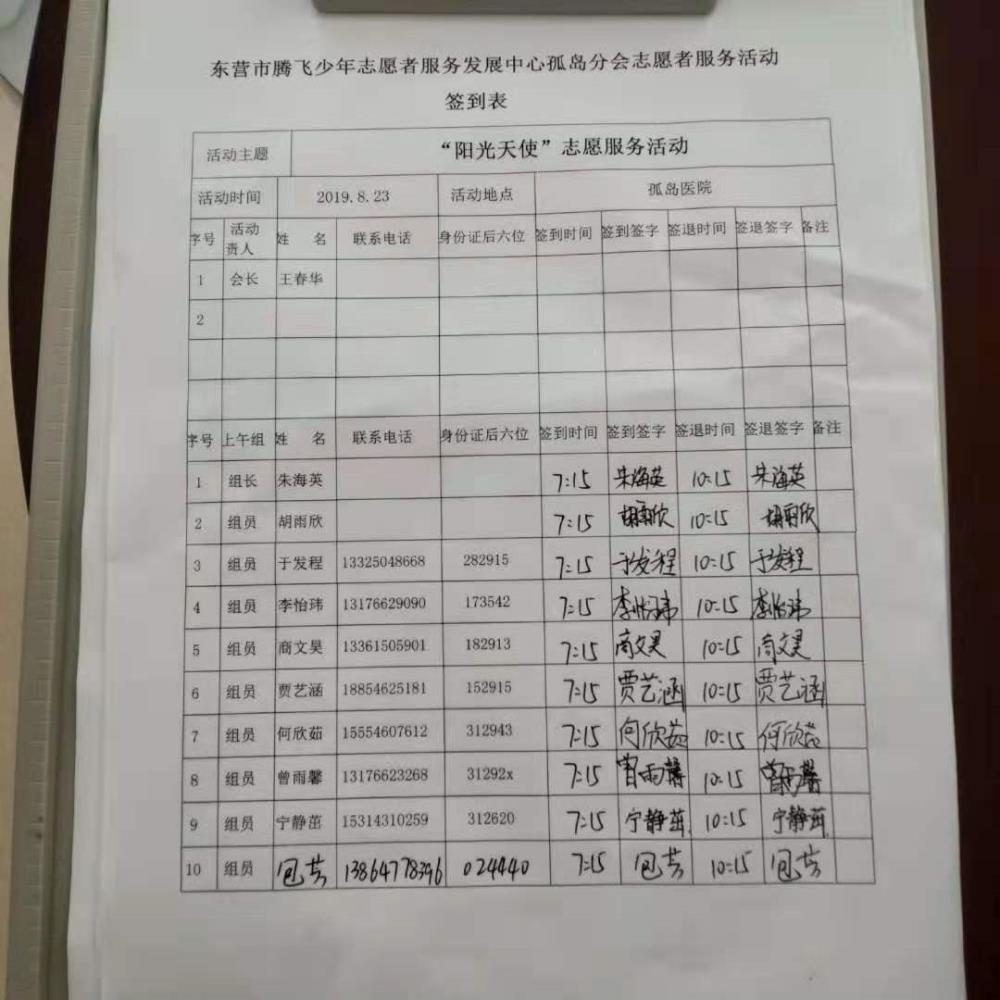 东营市腾飞少年志愿者服务发展中心孤岛分会志愿者服务活动
签到表
活动主题 “阳光天使”志愿服务活动
活动时间 2019.8.23 活动地点 孤岛医院
序号 活动责人 姓 名 联系电话 身份证后六位 签到时间 签到签字 签退时间 签退签字 备注
1 会长 王春华
2
序号 上午组 姓 名 联系电话 身份证后六位 签到时间 签到签字 签退时间 签退签字 备注
1 组长 朱海英 7:15 朱海英 10:15 朱海英
2 组员 胡雨欣 7:15 胡雨欣 10:15 胡雨欣
3 组员 于发程 13325048668 282915 7:15 于发程 10:15 于发程
4 组员 李怡玮 13176629090 173542 7:15 李怡玮 10:15 李怡玮
5 组员 商文昊 13361505901 182913 7:15 商文昊 10:15 商文昊
6 组员 贾艺涵 18854625181 152915 7:15 贾艺涵 10:15 贾艺涵
7 组员 何欣茹 15554607612 312943 7:15 何欣茹 10:15 何欣茹
8 组员 曾雨馨 13176623268 31292x 7:15 曾雨馨 10:15 曾雨馨
9 组员 宁静茁 15314310259 312620 7:15 宁静茁 10:15 宁静茁
10 组员 包芸 13864778396 024440 7:15 包芸 10:15 包芸